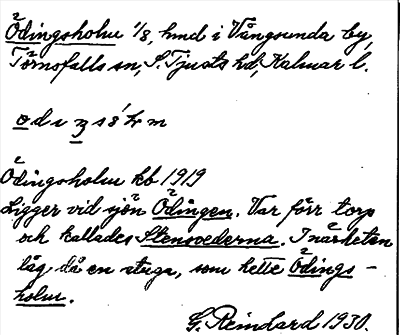 Ödingsholm 1/8, hmd i Vångsunda by,
Törnsfalls sn, S. Tjusts hd, Kalmar l.
Ödingsholm kb 1919
Ligger vid sjön Ödingen. Var förr torp
och kallades Stensvederna. I närheten
låg då en stuga, som hette Ödings-
holm.
G. Reinhard 1930.